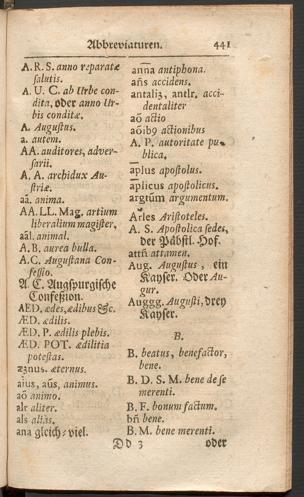 Abbreviaturen. 441
A. R. S. anno reparatæ
salutis.
A. U. C. ab Urbe con-
dita, oder anno Ur-
bis conditæ.
A. Augustus.
a. autem.
AA. auditores, adver-
sarii.
A. A. archidux Au-
striæ.
aā. anima.
AA. LL. Mag. artium
liberalium magister,
aāl. animal.
A. B. aurea bulla.
A. C. Augustana Con-
fessio.
A. C. Augspurgische
Confeßion.
AED. ædes, ædibus &c.
ÆD. ædilis.
ÆD. P. ædilis plebis.
ÆD. POT. ædilitia
potestas.
æternus.
aius, aūs, animus.
aō animo.
alr aliter.
als aliàs.
ana gleich-viel.
anna antiphona.
añs accidens.
antaliz, antlr. acci-
dentaliter
aō actio
actionibus
A. P. autoritate pu-
blica,
aplus apostolus.
aplicus apostolicus.
argtūm argumentum.
Arles Aristoteles.
A. S. Apostolica sedes,
der Päbstl. Hof.
attñ attamen.
Aug. Augustus, ein
Kayser. Oder Au-
gur.
Auggg. Augusti, drey
Kayser.
B.
B. beatus, benefactor,
bene.
B. D. S. M. bene de se
merenti.
B. F. bonum factum.
bñ bene.
B. M. bene merenti.
Dd 3 oder